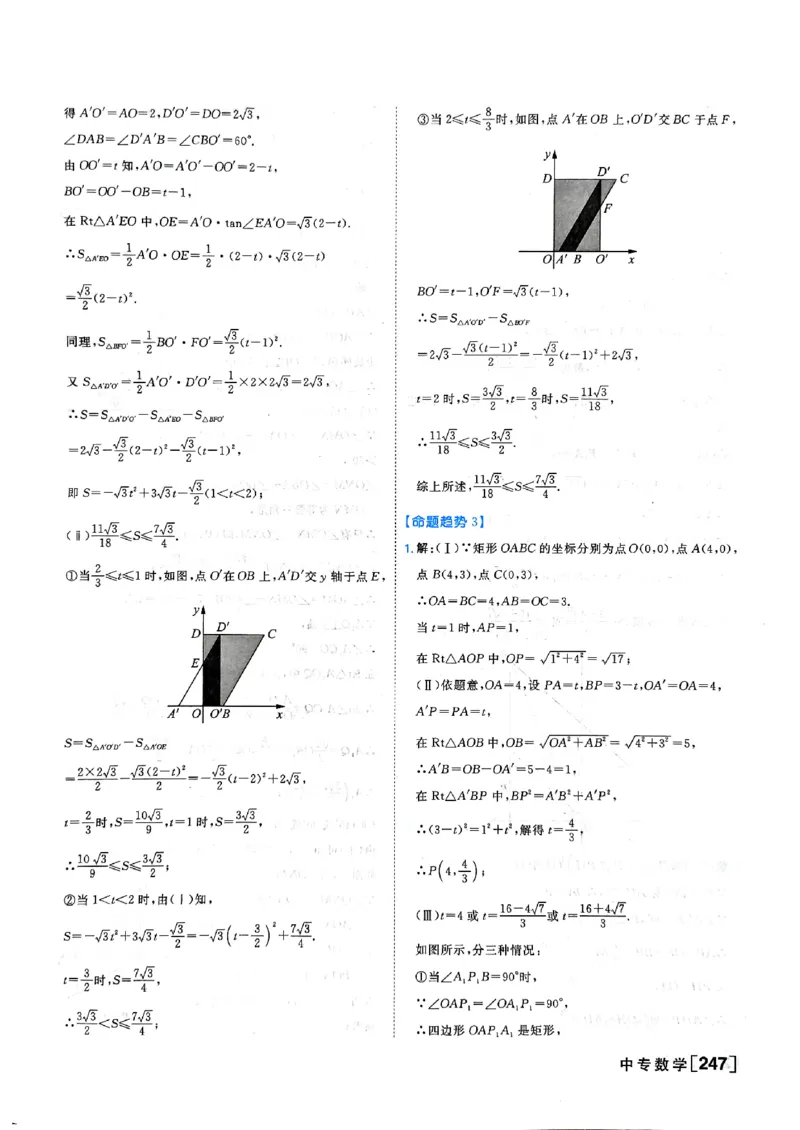 得 A′O′=AO=2,D′O′=DO=2√3,
∠DAB=∠D′A′B=∠CBO′=60°.
由 OO′=t 知,A′O=A′O′-OO′=2-t,
BO′=OO′-OB=t-1,
在 Rt△A′EO 中,OE=A′O·tan∠EA′O=√3(2-t).
∴S△A′EO=1/2A′O·OE=1/2·(2-t)·√3(2-t)
=√3/2(2-t)².
同理,S△BFO′=1/2BO′·FO′=√3/2(t-1)².
又 S△A′D′O′=1/2A′O′·D′O′=1/2×2×2√3=2√3,
∴S=S△A′D′O′-S△A′EO-S△BFO′
=2√3-√3/2(2-t)²-√3/2(t-1)²,
即 S=-√3t²+3√3t-√3/2(1<t<2);
(Ⅱ)11√3/18≤S≤7√3/4.
①当2/3≤t≤1 时,如图,点 O′在 OB 上,A′D′交 y 轴于点 E,
y
D D′ C
E
A′ O O′ B x
S=S△A′O′D′-S△A′OE
=2×2√3/2-√3(2-t)²/2=-√3/2(t-2)²+2√3,
t=2/3时,S=10√3/9,t=1 时,S=3√3/2,
∴10√3/9≤S≤3√3/2;
②当 1<t<2 时,由(Ⅰ)知,
S=-√3t²+3√3t-√3/2=-√3(t-3/2)²+7√3/4.
t=3/2时,S=7√3/4,
∴3√3/2<S≤7√3/4;
③当 2≤t≤8/3时,如图,点 A′在 OB 上,O′D′交 BC 于点 F,
y
D D′ C
F
O A′ B O′ x
BO′=t-1,O′F=√3(t-1),
∴S=S△A′O′D′-S△BO′F
=2√3-√3(t-1)²/2=-√3/2(t-1)²+2√3,
t=2 时,S=3√3/2,t=8/3时,S=11√3/18,
∴11√3/18≤S≤3√3/2.
综上所述,11√3/18≤S≤7√3/4.
【命题趋势 3】
1.解:(Ⅰ)∵矩形 OABC 的坐标分别为点 O(0,0),点 A(4,0),
点 B(4,3),点 C(0,3),
∴OA=BC=4,AB=OC=3.
当 t=1 时,AP=1,
在 Rt△AOP 中,OP=√(1²+4²)=√17;
(Ⅱ)依题意,OA=4,设 PA=t,BP=3-t,OA′=OA=4,
A′P=PA=t,
在 Rt△AOB 中,OB=√(OA²+AB²)=√(4²+3²)=5,
∴A′B=OB-OA′=5-4=1,
在 Rt△A′BP 中,BP²=A′B²+A′P²,
∴(3-t)²=1²+t²,解得 t=4/3,
∴P(4,4/3);
(Ⅲ)t=4 或 t=(16-4√7)/3或 t=(16+4√7)/3.
如图所示,分三种情况:
①当∠A₁P₁B=90°时,
∵∠OAP₁=∠OA₁P₁=90°,
∴四边形 OAP₁A₁ 是矩形,
中专数学[247]